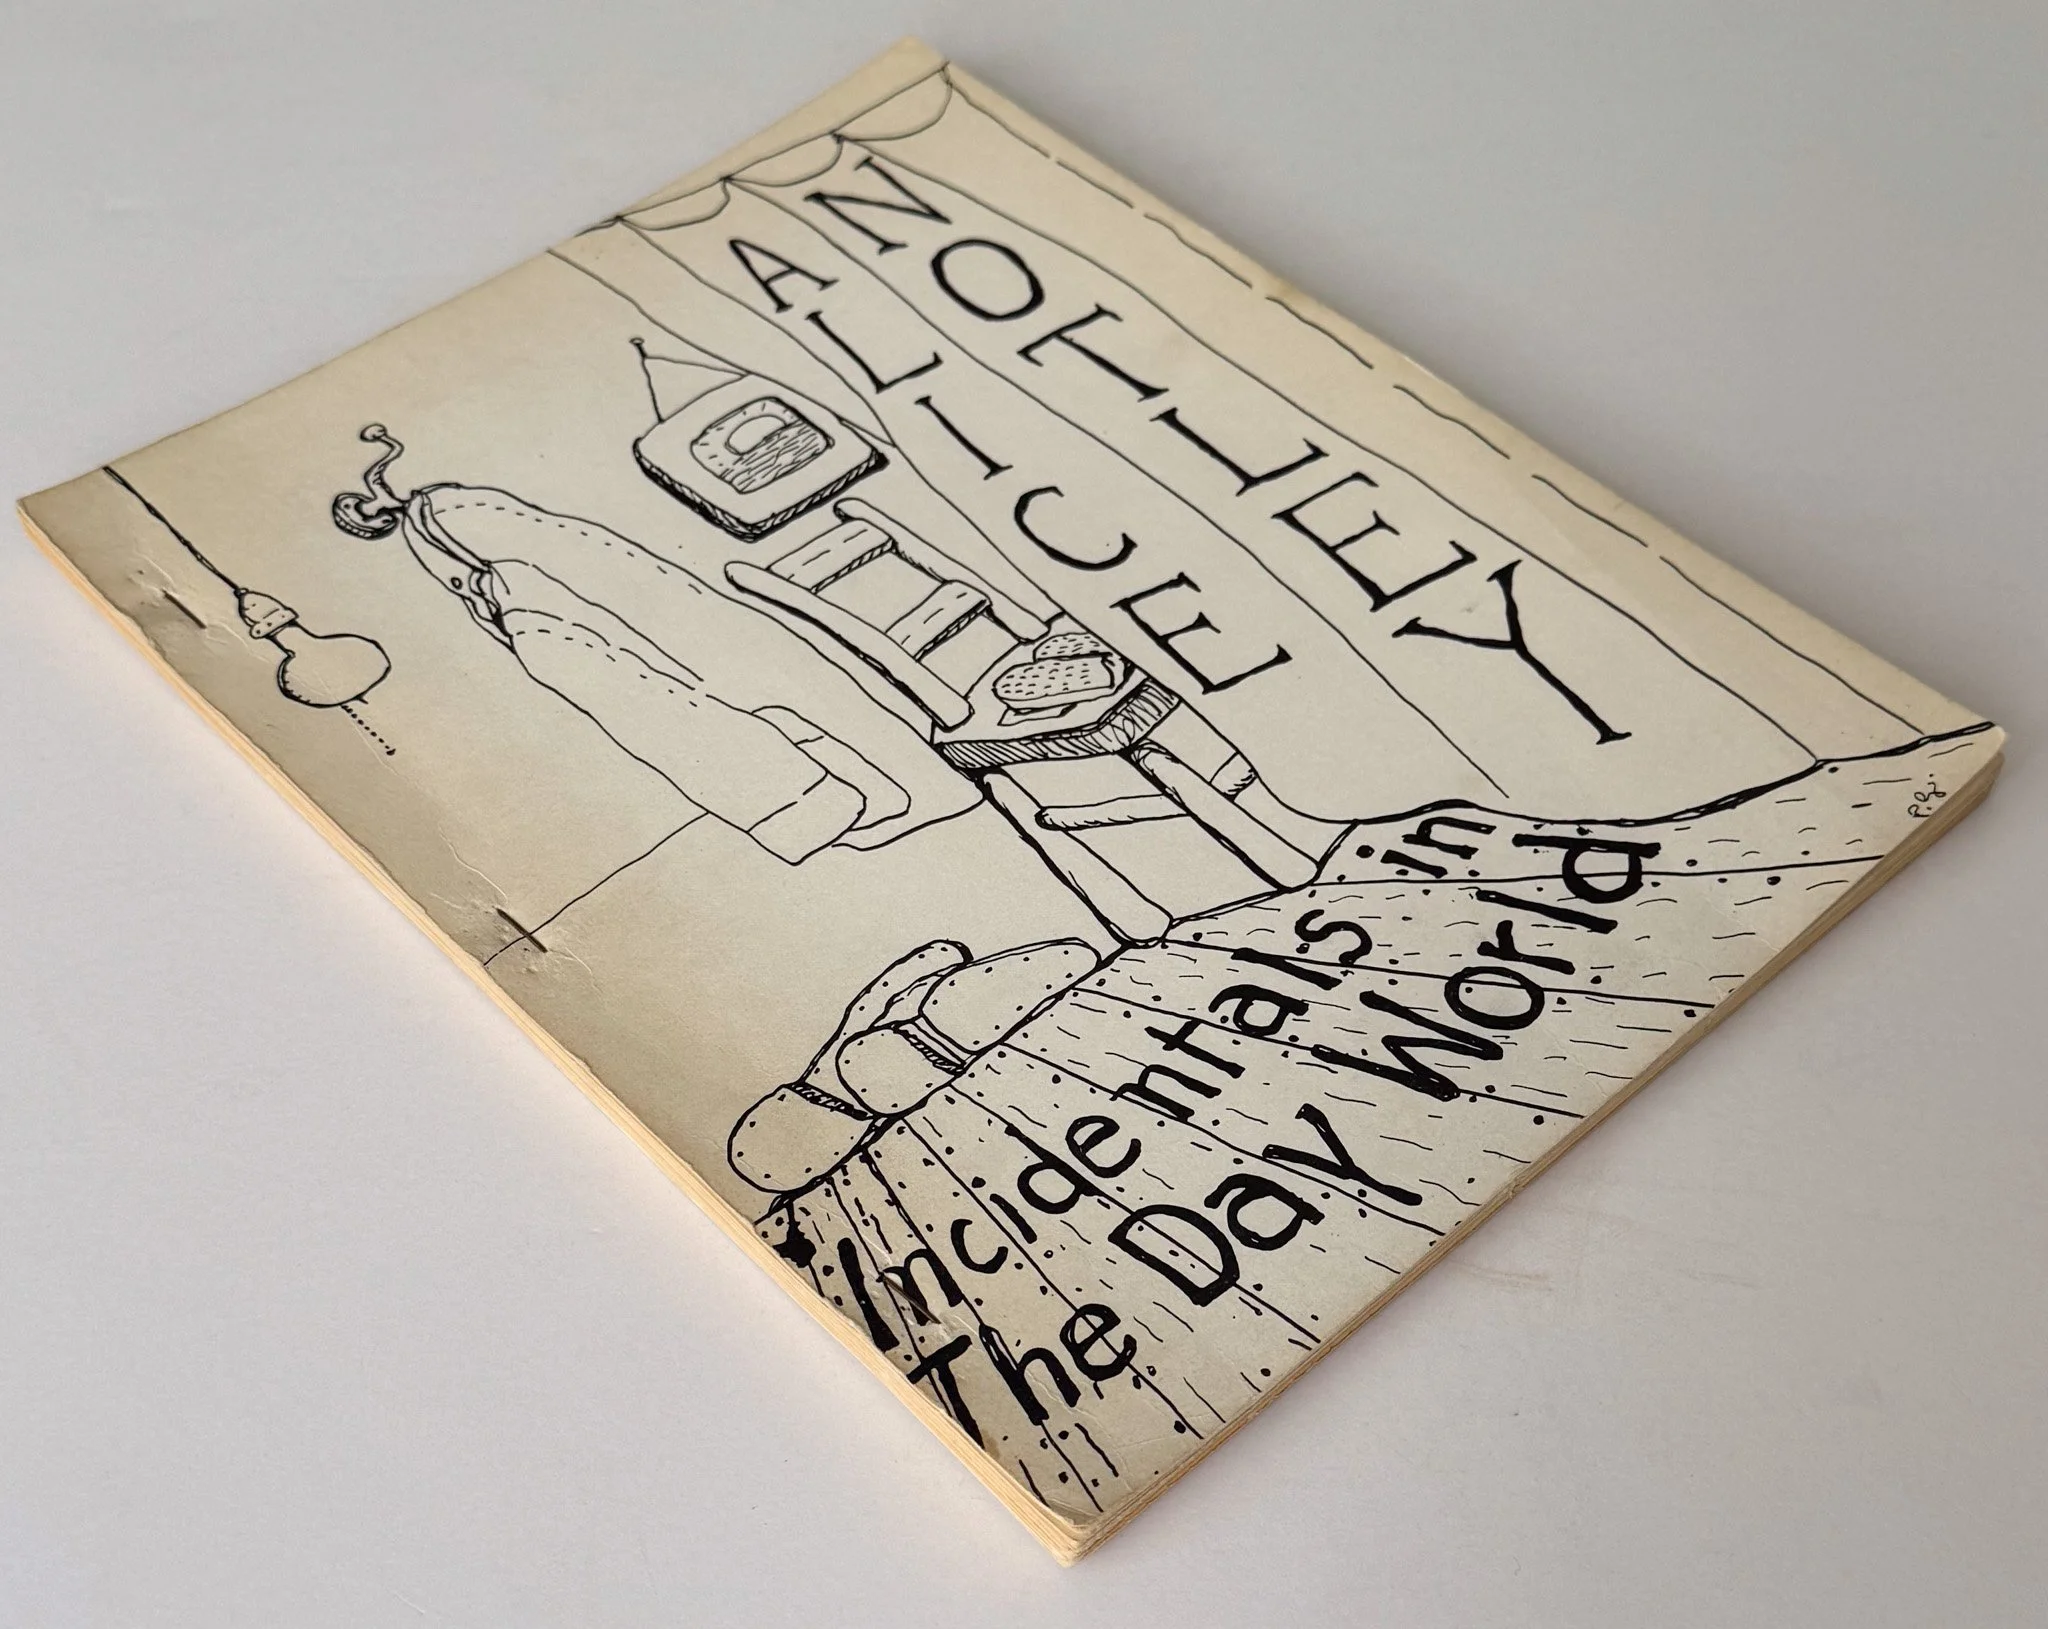 ALICE
NOTLEY
Incidentals in
The Day World
P.G.